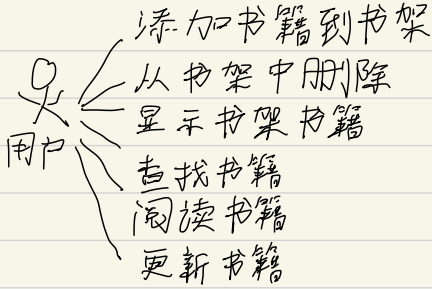 添加书籍到书架
从书架中删除
显示书架书籍
用户
查找书籍
阅读书籍
更新书籍